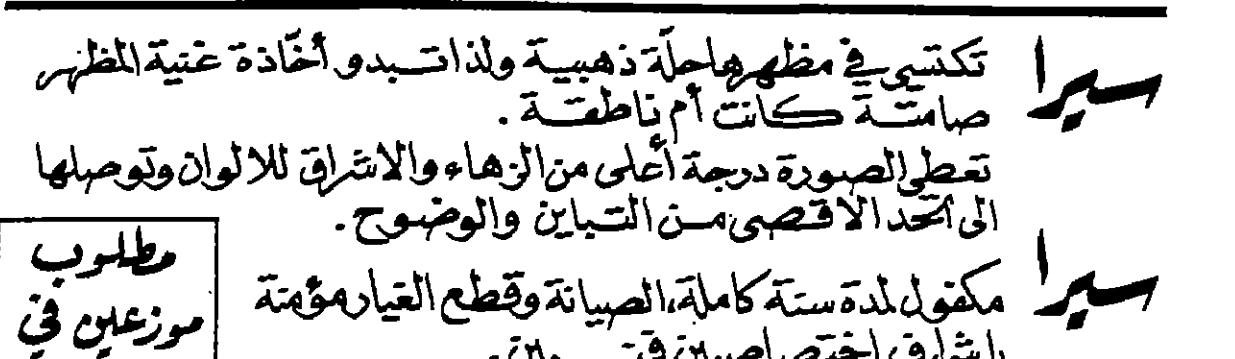 سيرا تكتسي في مظهرها حلّة ذهبية ولذا تبدو أخّاذة غنية المظهر
صامتة كانت أم ناطقة .
تعطي الصورة درجة أعلى من الزهاء والاشراق للالوان وتوصلها
الى الحد الاقصى من التباين والوضوح .
سيرا مكفول لمدة سنة كاملة، الصيانة وقطع الغيار مؤمنة
باشراف اختصاصيين
مطلوب
موزعين في